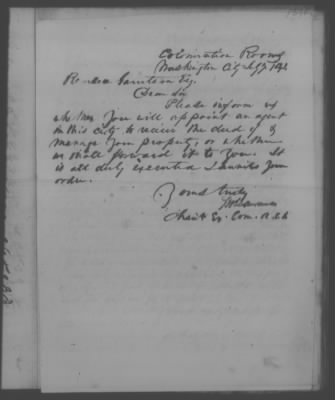 Colonization Rooms
Washington City
Esq.
Dear Sir
Please inform us
whether you will appoint an agent
in this city to receive the deed of &
manage your property; or whether
we shall forward it to you. It
is all duly executed & awaits your
order.
Yours truly
Com.